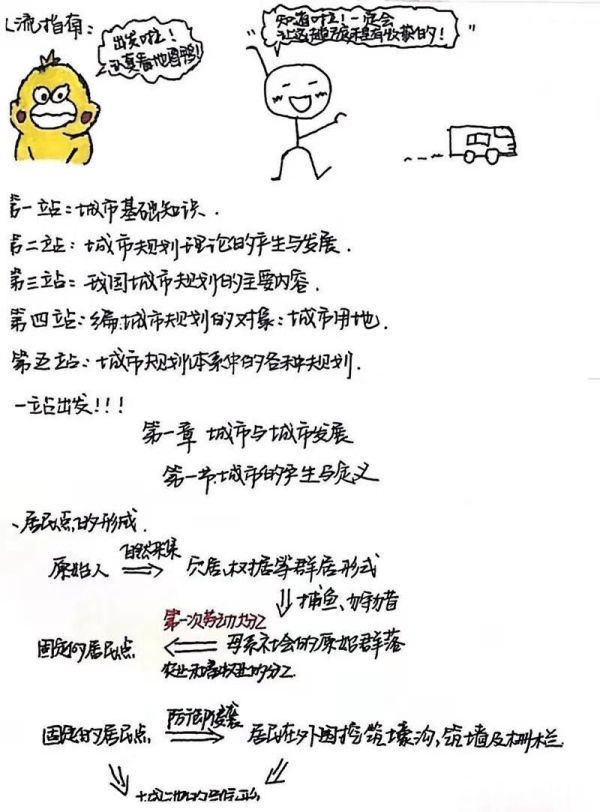 流指南:
出发啦!
认真看地图鸭!
知道啦!一定会
让这趟旅程有收获的!
第一站:城市基础知识.
第二站:城市规划理论的产生与发展.
第三站:我国城市规划的主要内容.
第四站:编城市规划的对象:城市用地.
第五站:城市规划体系中的各种规划.
一站出发!!!
第一章 城市与城市发展
第一节城市的产生与定义
、居民点的形成.
自然采集
原始人 ⇒ 穴居、树居等群居形式
⇓ 捕鱼、狩猎
第一次劳动分工
固定的居民点 ⇐ 母系社会的原始群落
农业和畜牧业的分工
防御侵袭
固定的居民点 ⇒ 居民在外围挖筑壕沟,筑墙及栅栏
城池的雏形